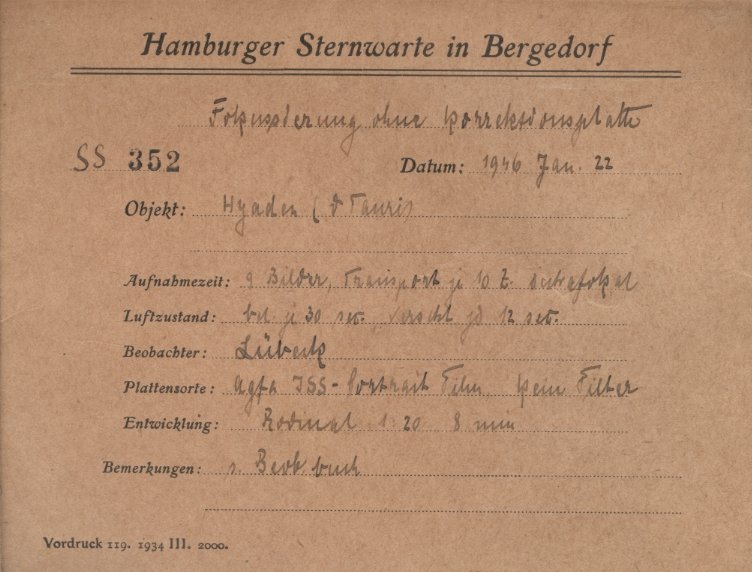 Hamburger Sternwarte in Bergedorf
Fokussierung ohne Korrektionsplatte
SS 352 Datum: 1946 Jan. 22
Objekt: Hyaden (ϑ Tauri)
Aufnahmezeit: 9 Bilder, Transport je 10 Z.
Luftzustand: bel. je 30 sec. 12 sec.
Beobachter: Lübeck
Plattensorte: Agfa ISS-Portrait Film kein Filter
Entwicklung: Rodinal 1:20 8 min
Bemerkungen: s. Beob buch
Vordruck 119. 1934 III. 2000.